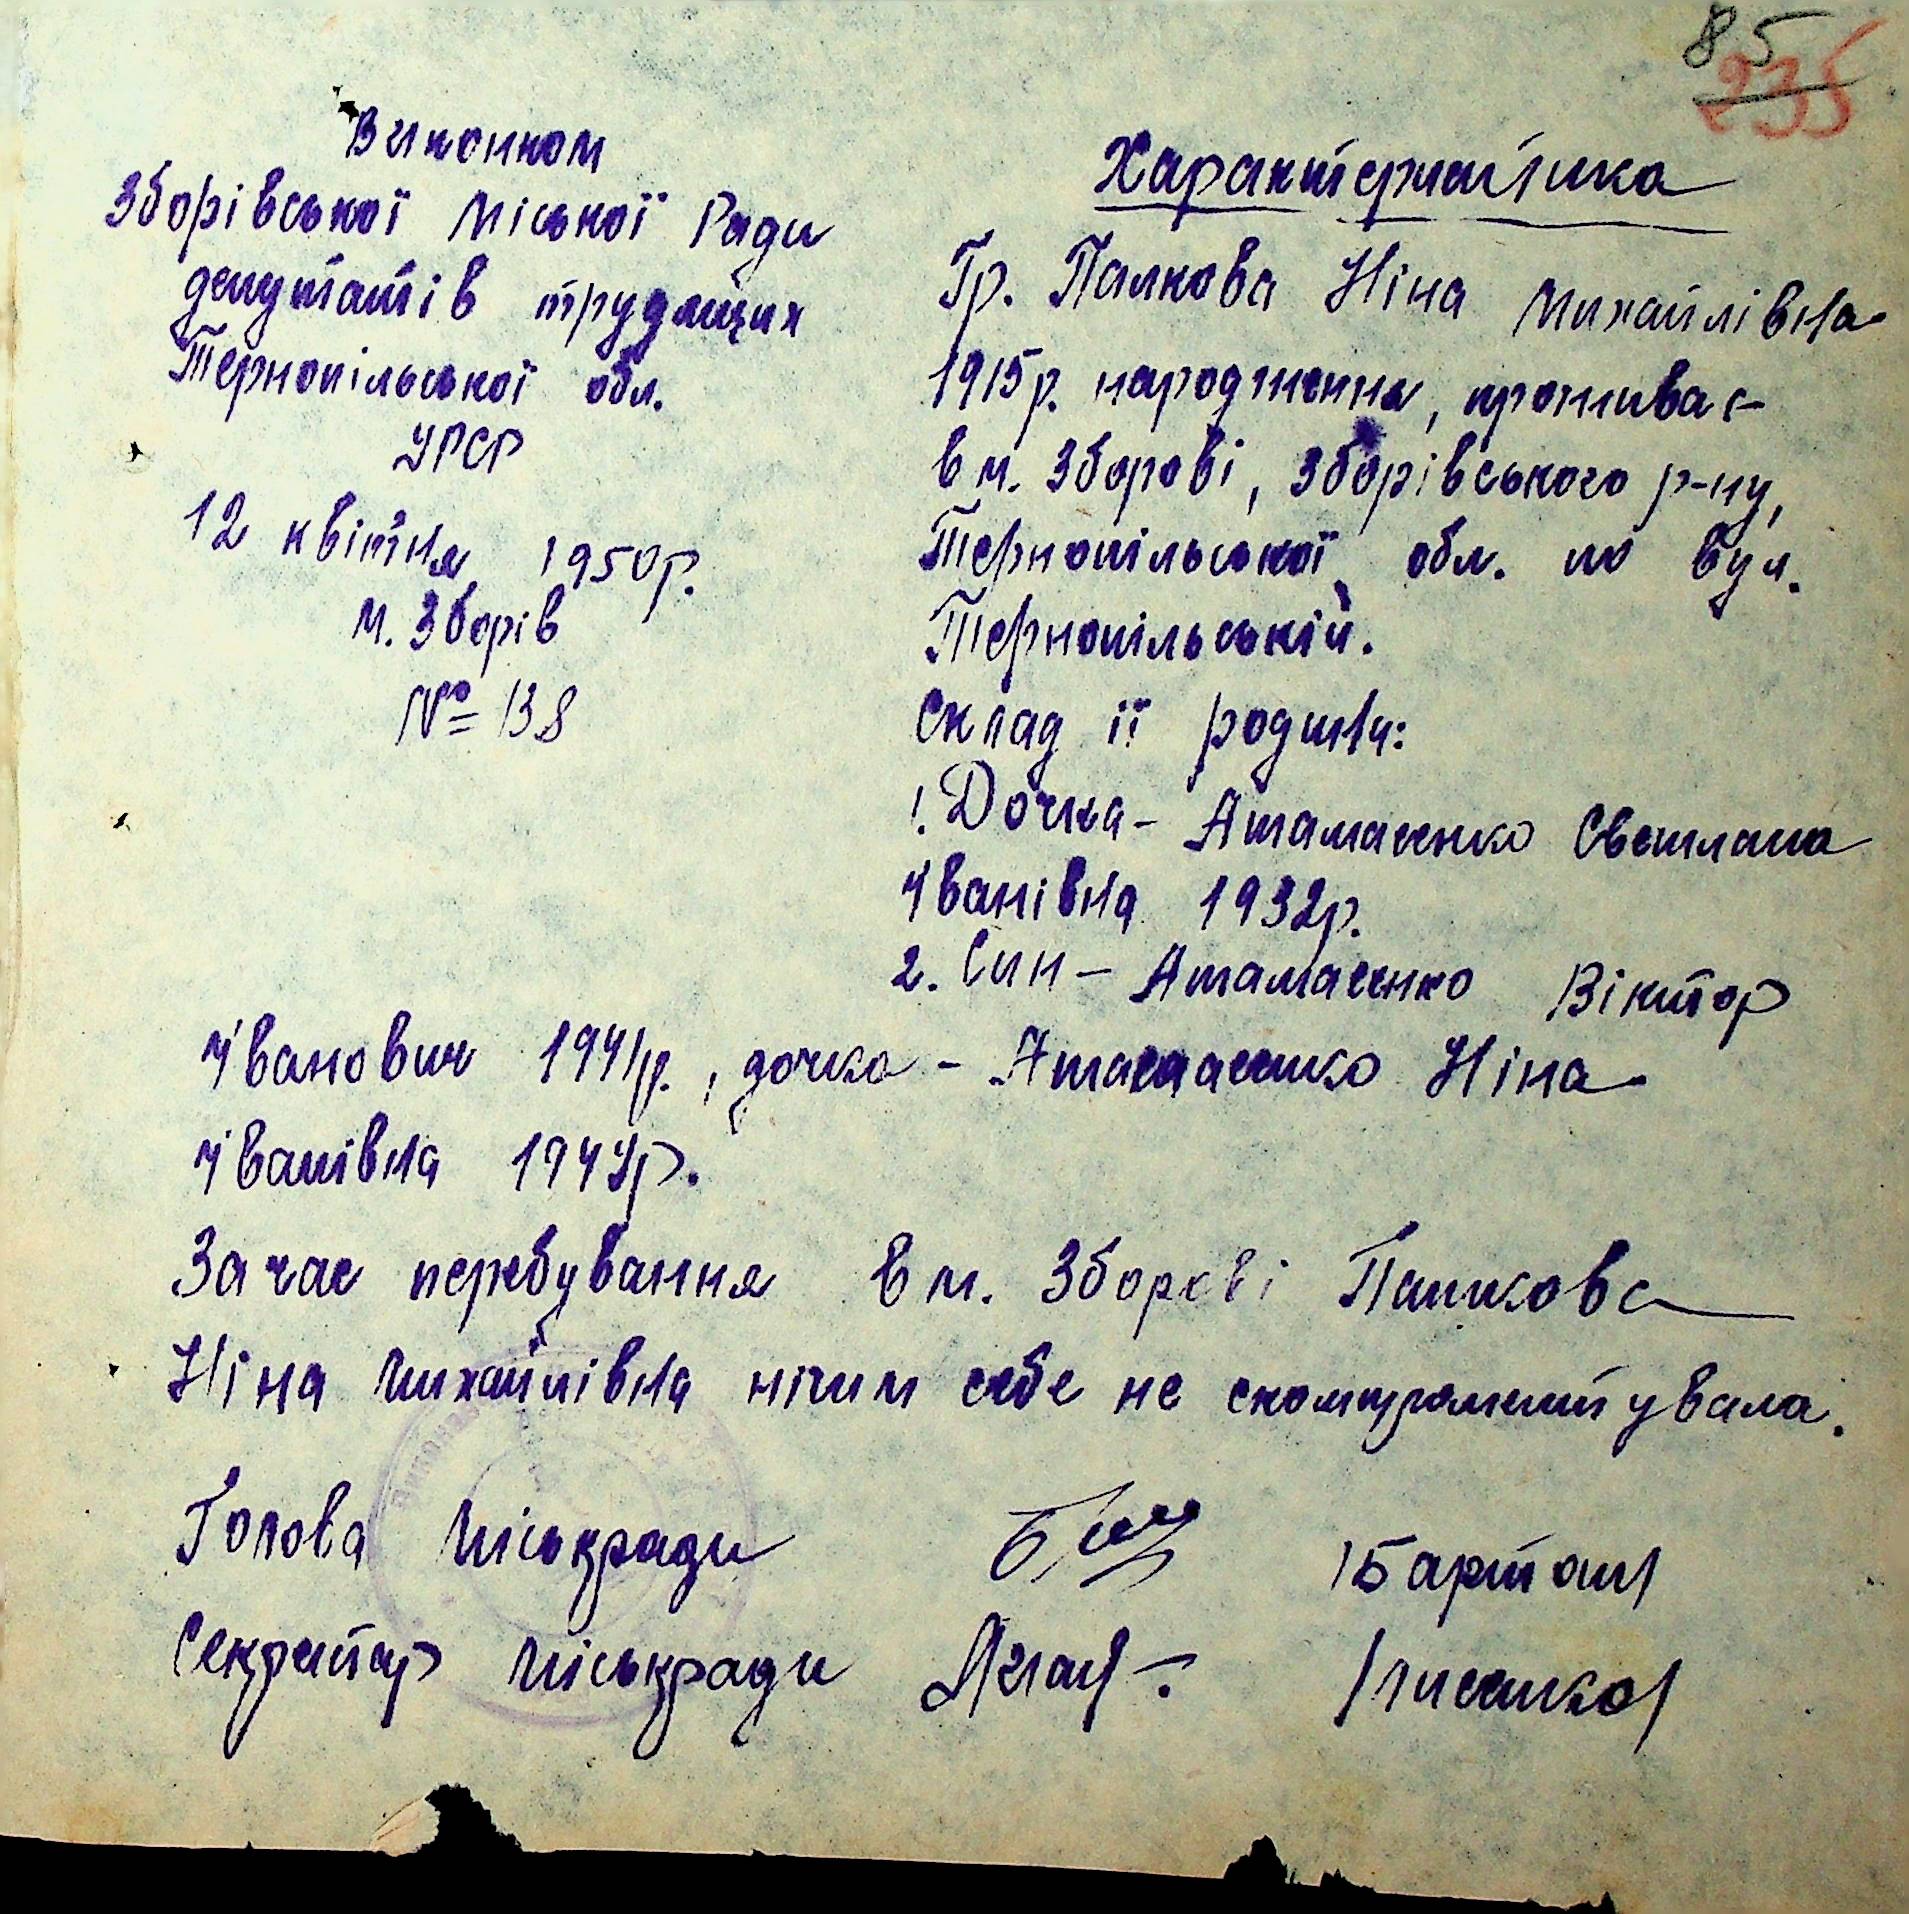 85
235
Виконком
Зборівської Міської Ради
депутатів трудящих
Тернопільської обл.
УРСР
12 квітня 1950р.
м. Зборів
№ 138
Характеристика
Гр. Палкова Ніна Михайлівна
1915р. народження, проживає
в м. Зборові, Зборівського р-ну,
Тернопільської обл. по вул.
Тернопільській.
Склад її родини:
1. Дочка - Атамасенко Свєтлана
Іванівна 1932р.
2. Син - Атамасенко Віктор
Іванович 1941р., дочка - Атамасенко Ніна
Іванівна 1944р.
За час перебування в м. Зборові
Ніна Михайлівна нічим себе не скомпроментувала.
Голова Міськради /Бартош/
Секретар Міськради